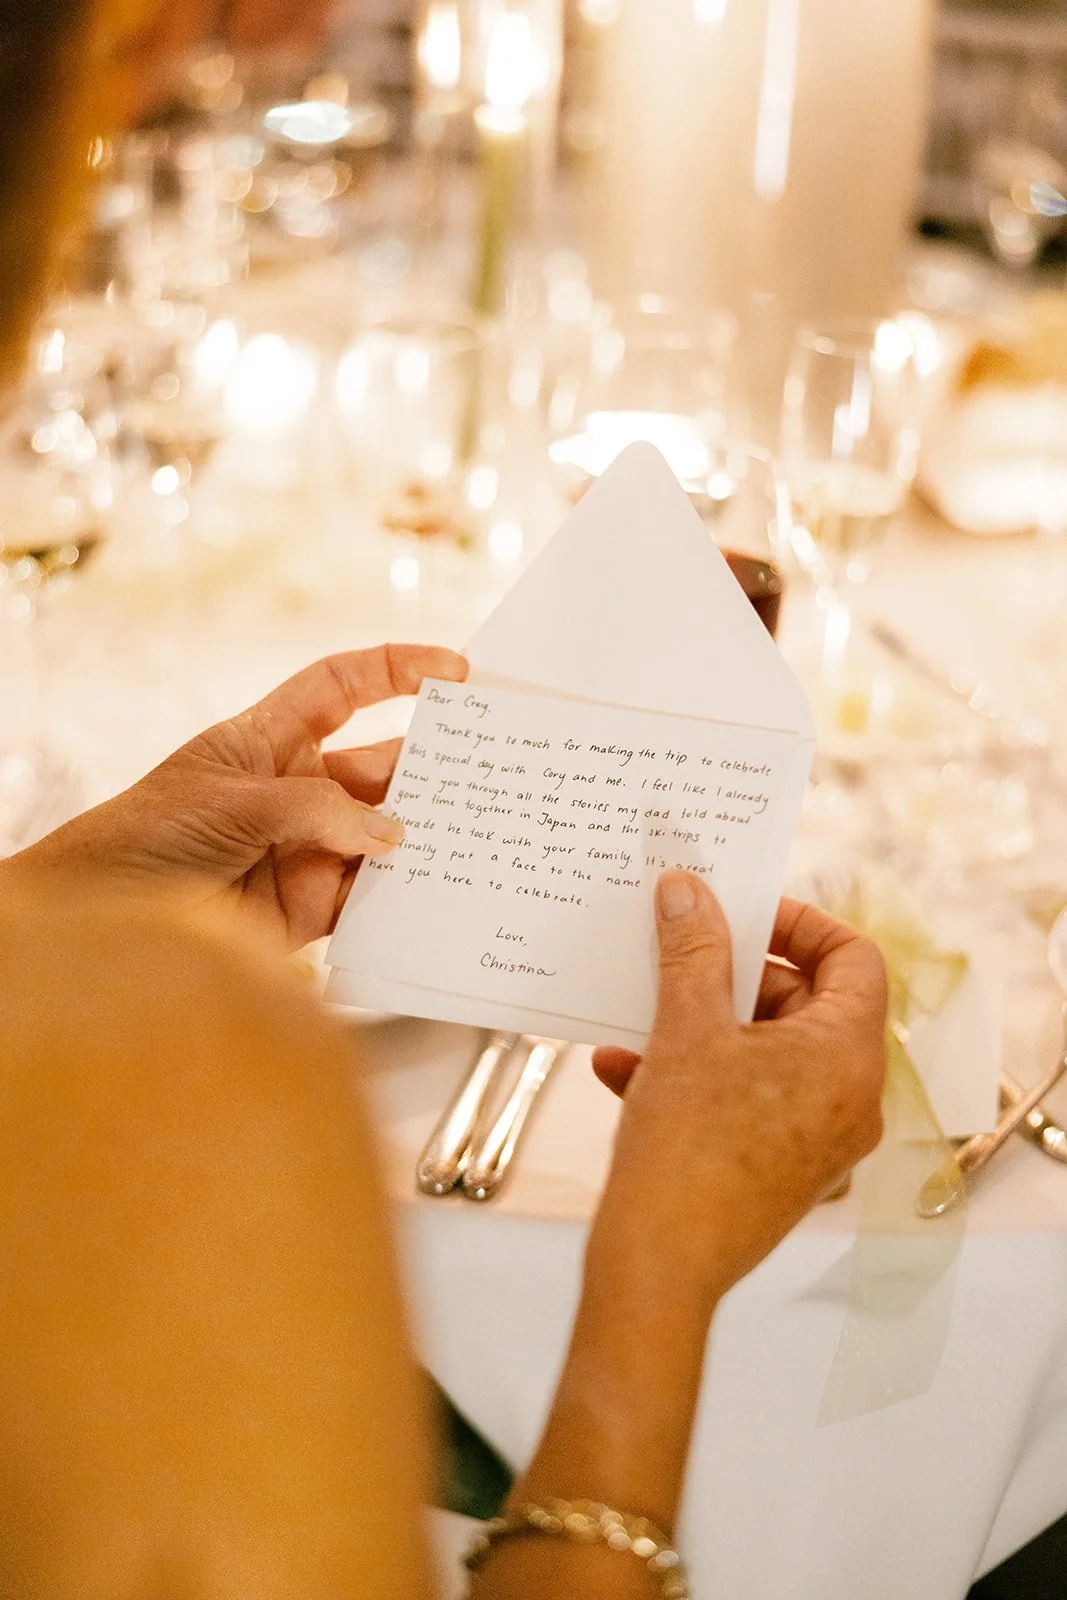 Dear Craig,
Thank you so much for making the trip to celebrate
this special day with Cory and me. I feel like I already
know you through all the stories my dad told about
your time together in Japan and the ski trips to
Colorado he took with your family. It's great
finally put a face to the name
have you here to celebrate.
Love,
Christina